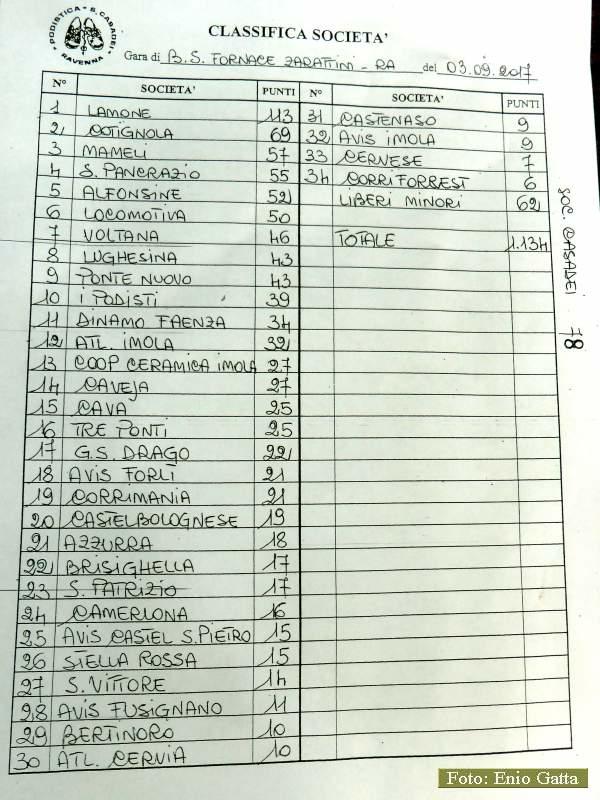 PODISTICA - S. CASADEI - RAVENNA
CLASSIFICA SOCIETA'
Gara di B.S. FORNACE ZARATTINI - RA del 03.09.2017
N° SOCIETA' PUNTI
1 LAMONE 113
2 COTIGNOLA 69
3 MAMELI 57
4 S. PANCRAZIO 55
5 ALFONSINE 52
6 LOCOMOTIVA 50
7 VOLTANA 46
8 LUGHESINA 43
9 PONTE NUOVO 43
10 I PODISTI 39
11 DINAMO FAENZA 34
12 ATL. IMOLA 32
13 COOP CERAMICA IMOLA 27
14 CAVEJA 27
15 CAVA 25
16 TRE PONTI 25
17 G.S. DRAGO 22
18 AVIS FORLÌ 21
19 CORRIMANIA 21
20 CASTELBOLOGNESE 19
21 AZZURRA 18
22 BRISIGHELLA 17
23 S. PATRIZIO 17
24 CAMERLONA 16
25 AVIS CASTEL S. PIETRO 15
26 STELLA ROSSA 15
27 S. VITTORE 14
28 AVIS FUSIGNANO 11
29 BERTINORO 10
30 ATL. CERVIA 10
N° SOCIETA' PUNTI
31 CASTENASO 9
32 AVIS IMOLA 9
33 CERVESE 7
34 CORRIFORREST 6
LIBERI MINORI 62
TOTALE 1.134
SOC. CASADEI 78
Foto: Enio Gatta